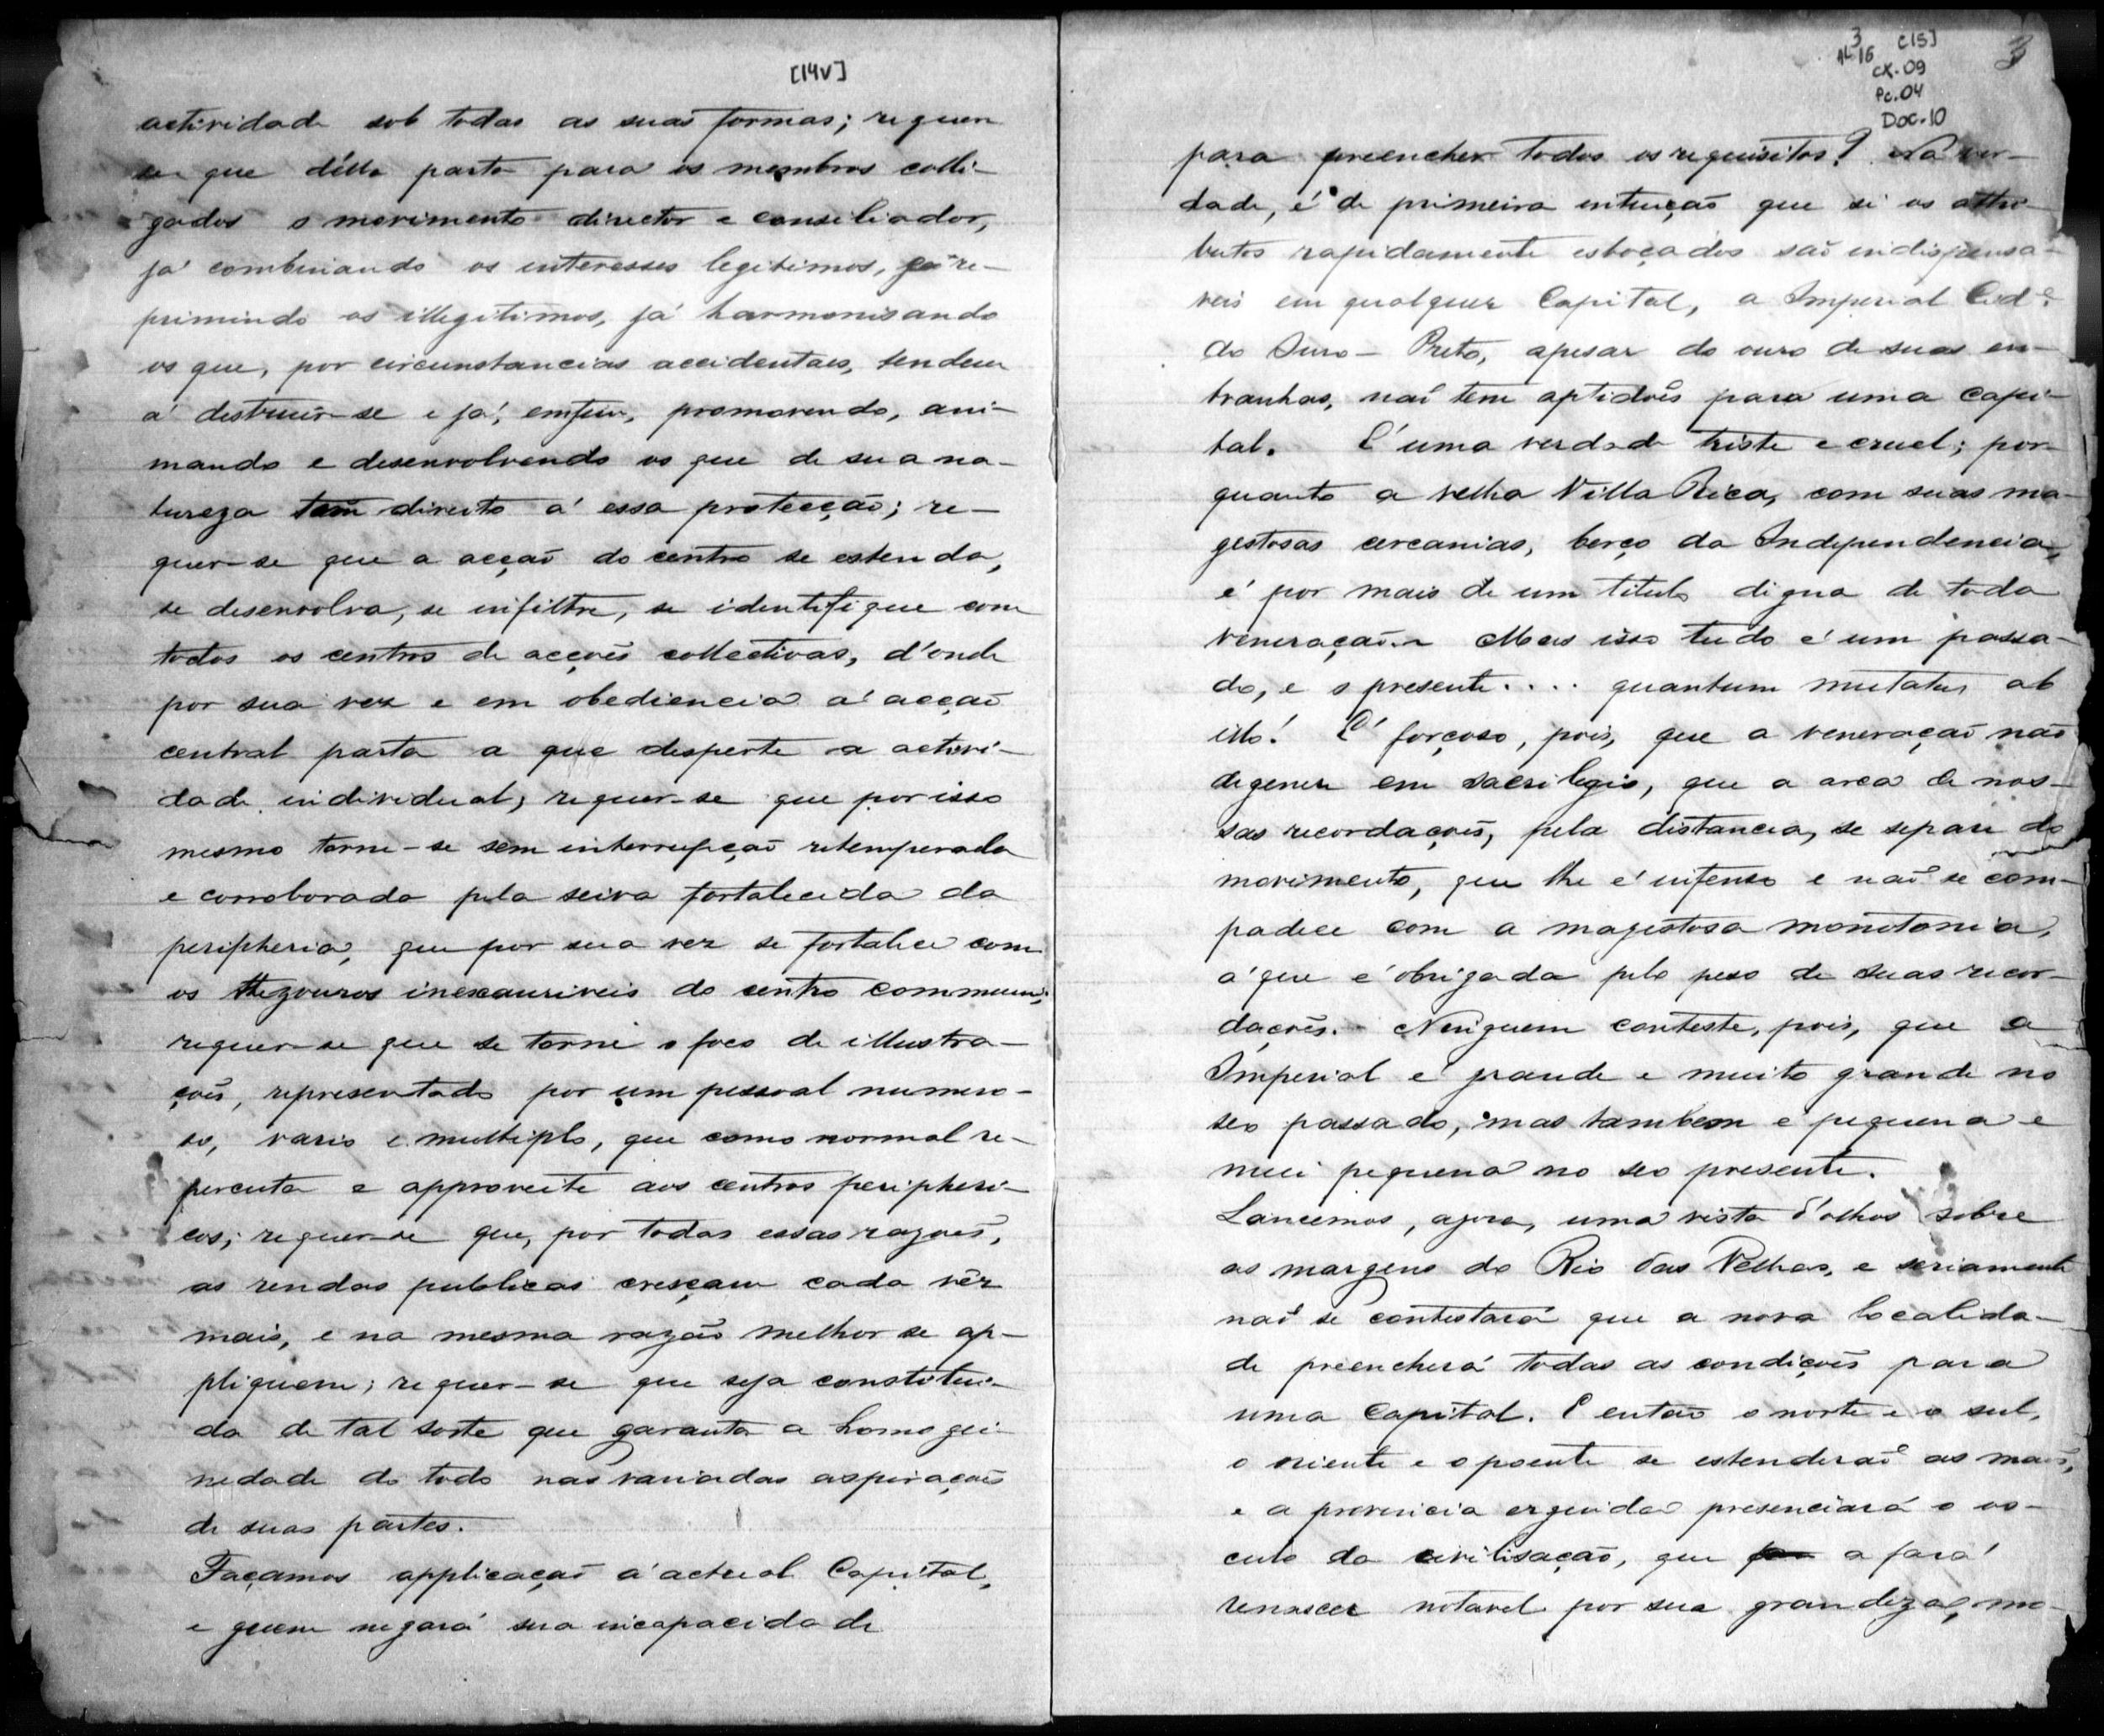 [14v]
actividade sob todas as suas formas; requer
se que d'élla parta para os membros colli-
gados o movimento director e conseliador,
já combinando os interesses legitimos, já re-
primindo os illegitimos, já harmonisando
os que, por circunstancias accidentaes, tendem
á destruir-se e já, emfim, promovendo, ani-
mando e desenvolvendo os que de sua na-
tureza tem direito á essa protecção; re-
quer-se que a acção do centro se estenda,
se desenvolva, se infiltre, se identifique com
todos os centros de acções collectivas, d'onde
por sua vez e em obediencia á acção
central parta a que desperte a activi-
dade individual; requer-se que por isso
mesmo torne-se sem interrupção retemperada
e corroborada pela seiva fortalecida da
peripheria, que por sua vez se fortalece com
os thezouros inexauriveis do centro commum;
requer-se que se torne o foco de illustra-
ções, representado por um pessoal numero-
so, vario e multiplo, que como normal re-
percuta e approveite aos centros peripheri-
cos; requer-se que, por todas essas razões,
as rendas publicas cresçam cada vêz
mais, e na mesma razão melhor se ap-
pliquem; requer-se que seja constitui-
da de tal sorte que garanta a homogei-
nedade do todo nas variadas aspirações
de suas partes.
Façamos applicação á actual Capital,
e quem negará sua incapacidade
3 [15] 3
AL 16
CX.09
Pc.04
Doc.10
para preencher todos os requisitos? Na ver-
dade, é de primeira intuição que si os attri-
butos rapidamente esboçados são indispensa-
veis em qualquer Capital, a Imperial Cid.e
do Ouro-Preto, apesar do ouro de suas en-
tranhas, não tem aptidões para uma capi-
tal. E' uma verdade triste e cruel; por-
quanto a velha Villa Rica, com suas ma-
gestosas cercanias, berço da Independencia,
é por mais de um titulo digna de toda
veneração. Mas isso tudo é um passa-
do, e o presente.... quantum mutatus ab
illo! E' forçoso, pois, que a veneração não
degenere em sacrilegio, que a arca de nos-
sas recordações, pela distancia, se separe do
movimento, que lhe é infenso e não se com-
padece com a magestosa monotonia,
á que é obrigada pelo peso de suas recor-
dações. Ninguem conteste, pois, que a
Imperial é grande e muito grande no
seo passado, mas tambem é pequena e
mui pequena no seo presente.
Lancemos, agora, uma vista d'olhos sobre
as margens do Rio das Velhas, e seriamente
não se contestará que a nova localida-
de preencherá todas as condições para
uma Capital. E então o norte e o sul,
o oriente e o poente se estenderão as mãos,
e a provincia erguida presenciará o os-
culo da civilisação, que a fará
renascer notavel por sua grandeza, mo-